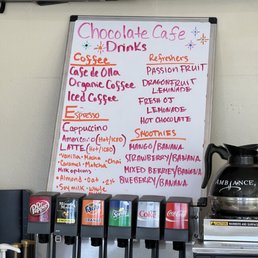 Chocolate Cafe
Drinks
Coffee
Cafe de Olla
Organic Coffee
Iced Coffee
Espresso
Cappuccino
Americano (Hot/Iced)
Latte (Hot/Iced)
•Vanilla •Mocha
•Caramel •Matcha •Chai
Milk options
•Almond •Oat •2%
•Soy milk •Whole
Refreshers
Passion Fruit
Dragonfruit
Lemonade
Fresh OJ
Lemonade
Hot Chocolate
Smoothies
Mango/Banana
Strawberry/Banana
Mixed Berries/Banana
Blueberry/Banana
AMBIANCE
Dr Pepper
Fanta
Sprite
Coke
Coca-Cola